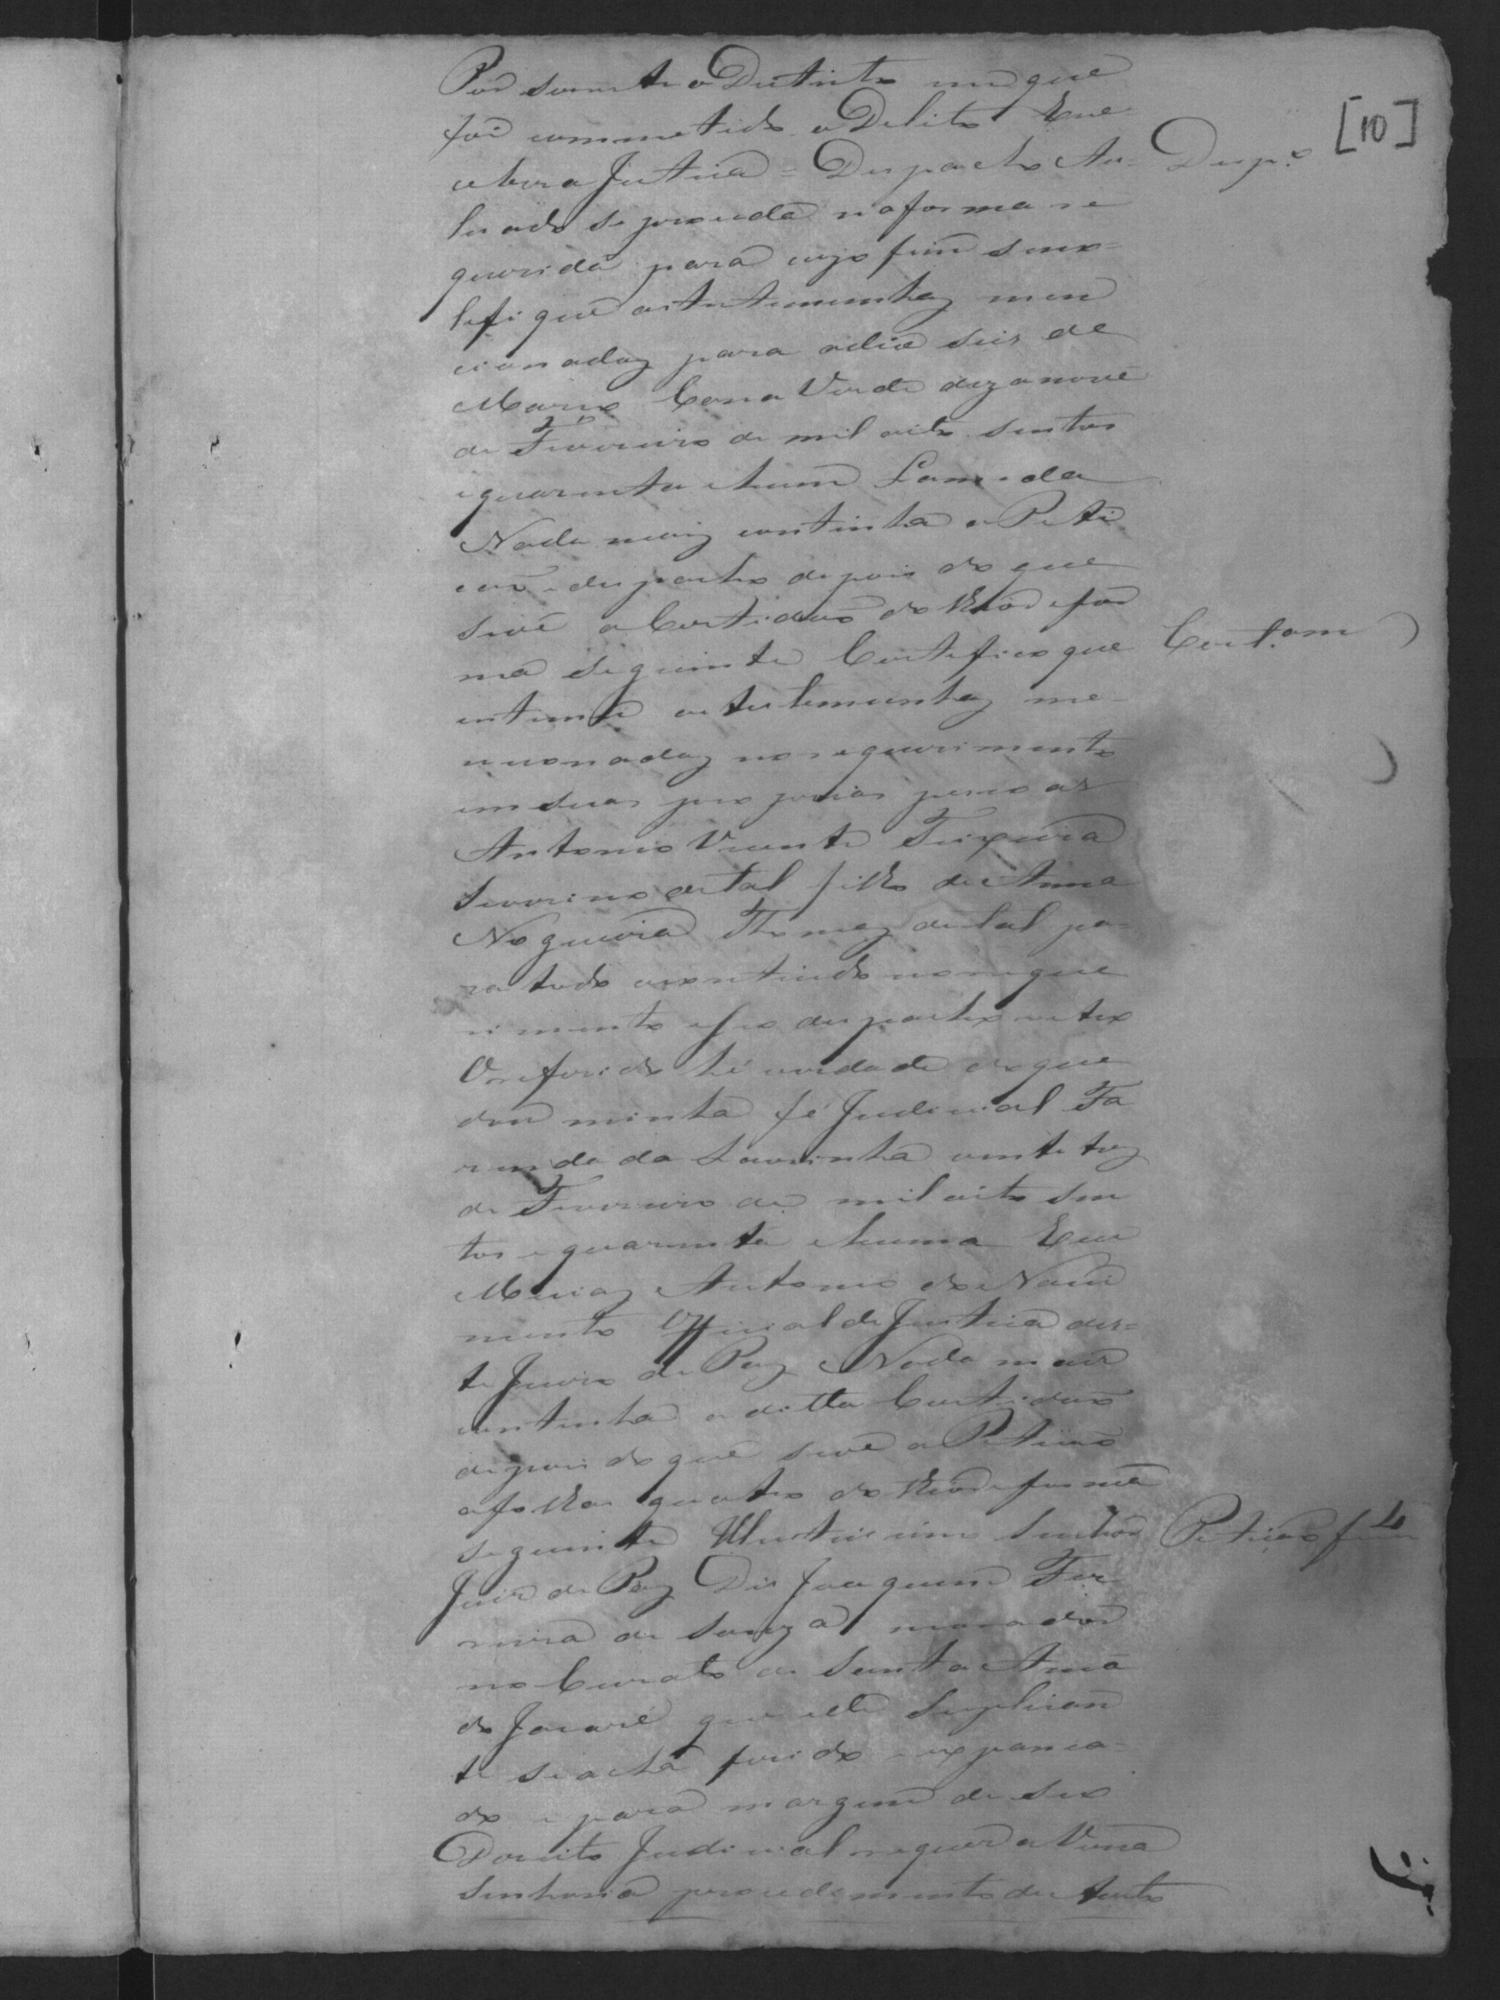 [10]
Por somente o Destricto em que
foi commetido o Delicto E Re-
cebera Justiça = Despacho Au- Desp.º
tuado se proceda na forma re
querida para cujo fim se no=
tefique as testemunhaz men
cionadaz para o dia seis de
Março Cana Verde dezanove
de Fevereiro de mil oito sentos
e quarenta e hum Lameda
Nada maiz continha a Peti
cão e despacho depois do que
se vê a Certidão do theor e for
ma seguinte Certefico que Cert.am
entimei as testemunhaz me-
ncionadaz no requerimento
em suas proprias pessoas
Antonio Vicente Teixeira
Severino de tal filho de Anna
Nogueira Thomaz de tal pa-
ra todo o contiudo no reque
rimento e seo despacho retro
O referido hé verdade do que
dou minha fé Judicial Fa
zenda da Lavrinha vinte trez
de Fevereiro de mil oito sen
tos e quarenta e hum Eu
Messiaz Antonio do Nasci
mento Official de Justiça des=
te Juizo de Paz Nada mais
continha a ditta Certidão
depois do que se vê a Petição
a folhas quatro do theor e forma
seguinte Illustrissimo Senhor Petição f 4
Juiz de Paz Diz Joaquim Fer
reira de Souza morador
no Curato de Santa Anna
do Jacaré que elle Suplican
te se acha ferido e espanca-
do e para margem de seo
Direito Judicial requer a Vossa
Senhoria procedimento de Auto